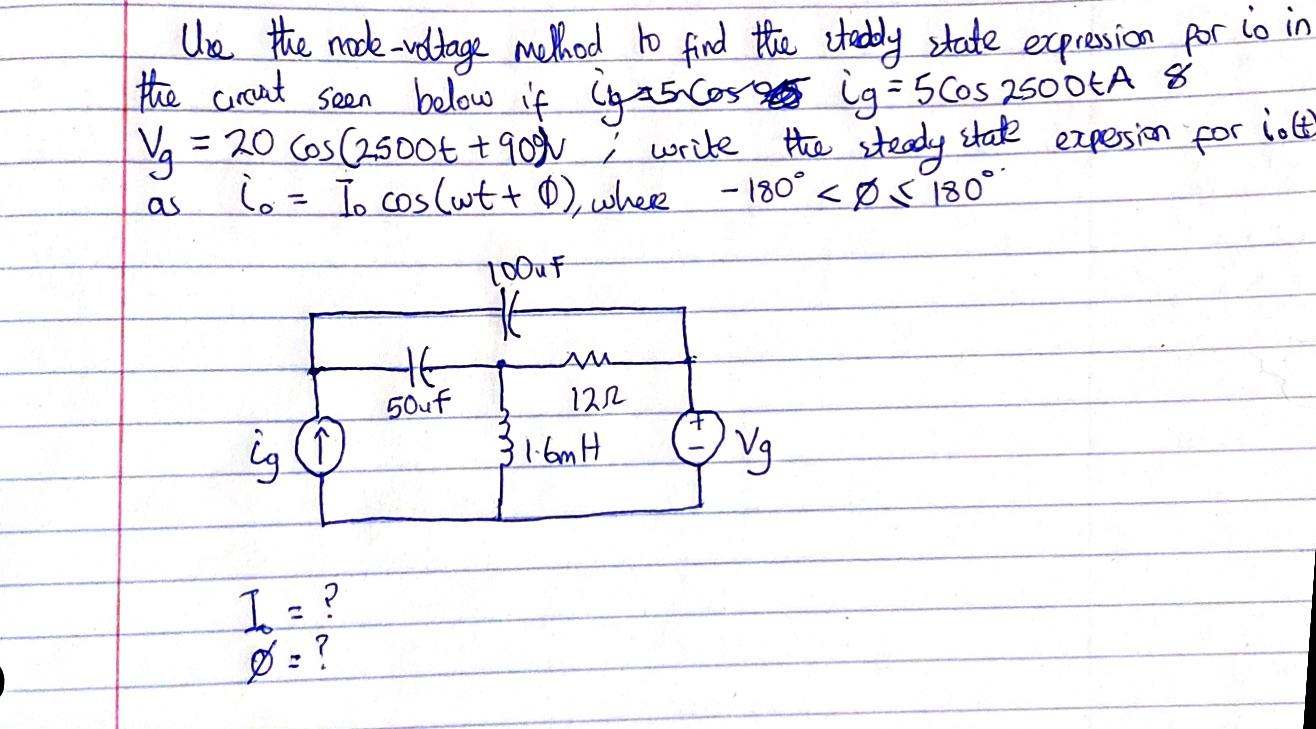 Use the node-voltage method to find the steady state expression for io in
the circuit seen below if ig = 5 Cos 2500tA &
Vg = 20 cos(2500t + 90°)V ; write the steady state expession for io(t)
as io = Io cos(wt + Φ), where -180° < Ø ≤ 180°
100uF
50uF 12Ω
ig ↑ 1.6mH + - Vg
Io = ?
Ø = ?